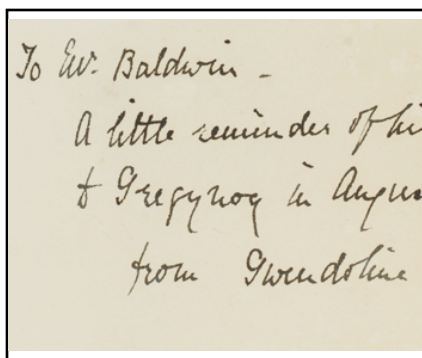 To Mr. Baldwin -
A little reminder of hi
to Gregynog in Augu
from Gwendoline